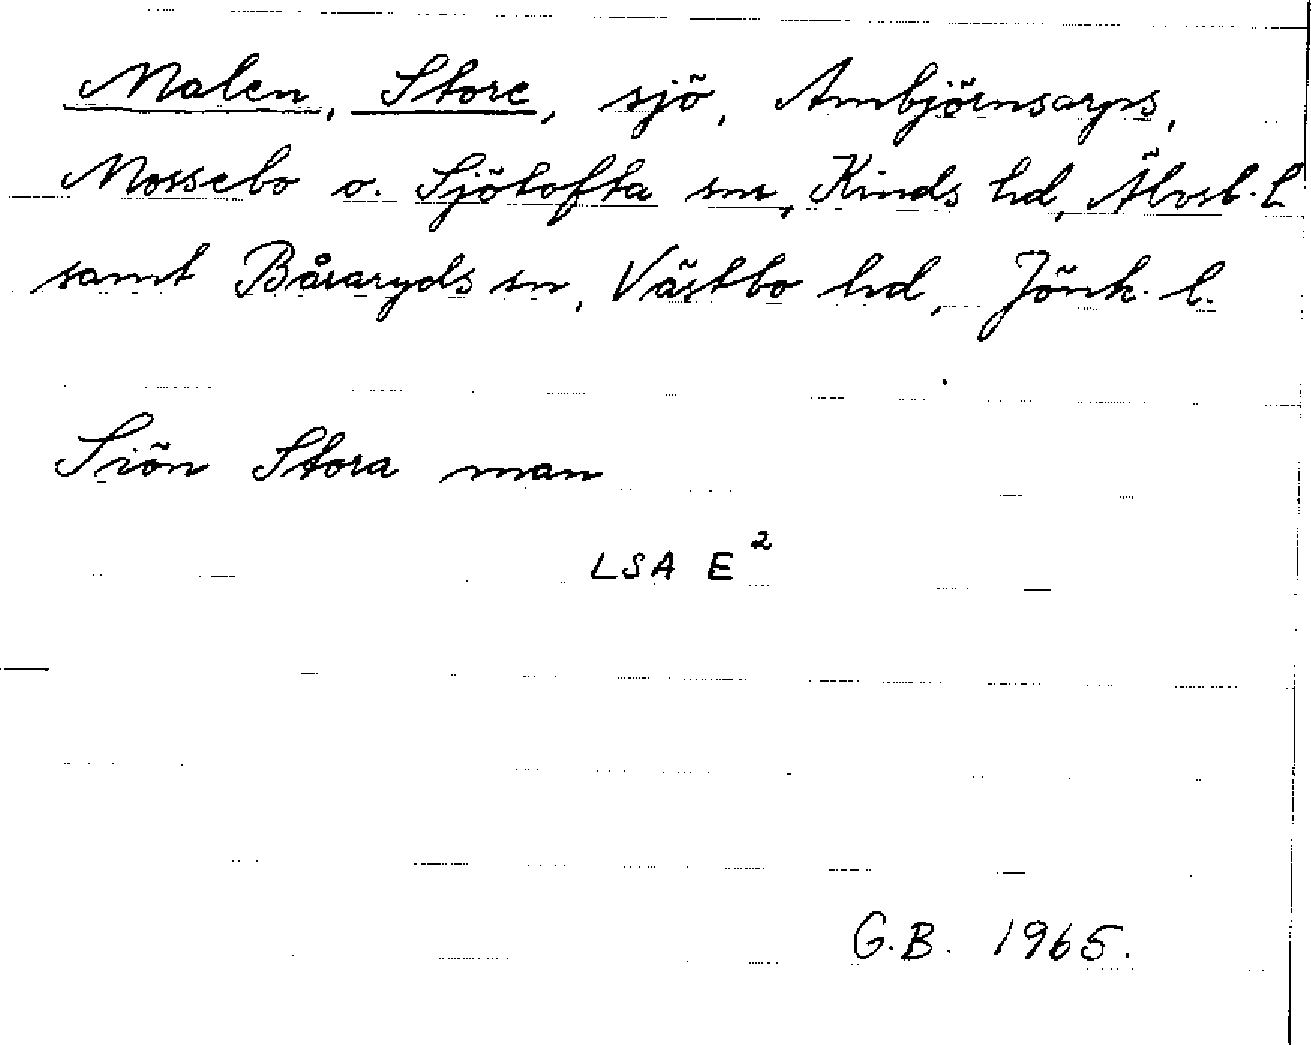 Malen, Store, sjö, Ambjörnsarps,
Mossebo o. Sjötofta snr, Kinds hd, Älvsb. l
samt Båraryds sn, Västbo hd, Jönk. l.
Siön Stora man
LSA E²
G.B. 1965.